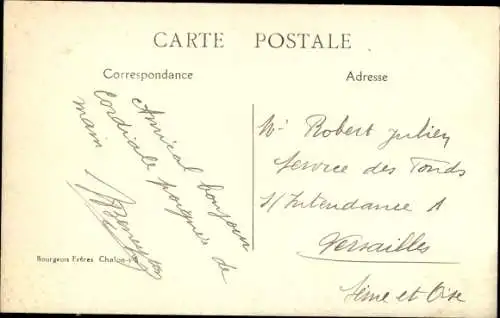 CARTE POSTALE
Correspondance
Adresse
Amical bonjour
cordiale poignée de
main
Mr Robert Julien
Service des Fonds
S/Intendance
Versailles
Seine et Oise
Bourgeois Frères